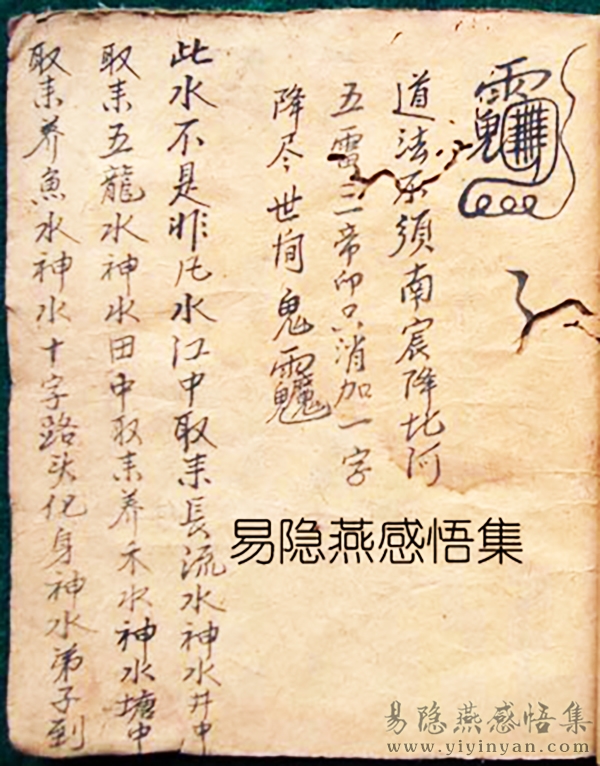 道法不須南宸降阿
五雷三帝印只消加一字
降尽世間鬼
此水不是非凡水江中取来長流水神水井中
取来五龍水神水田中取来养禾水神水塘中
取来养魚水神水十字路头化身神水弟子到
易隐燕感悟集
易隐燕感悟集
www.yiyinyan.com